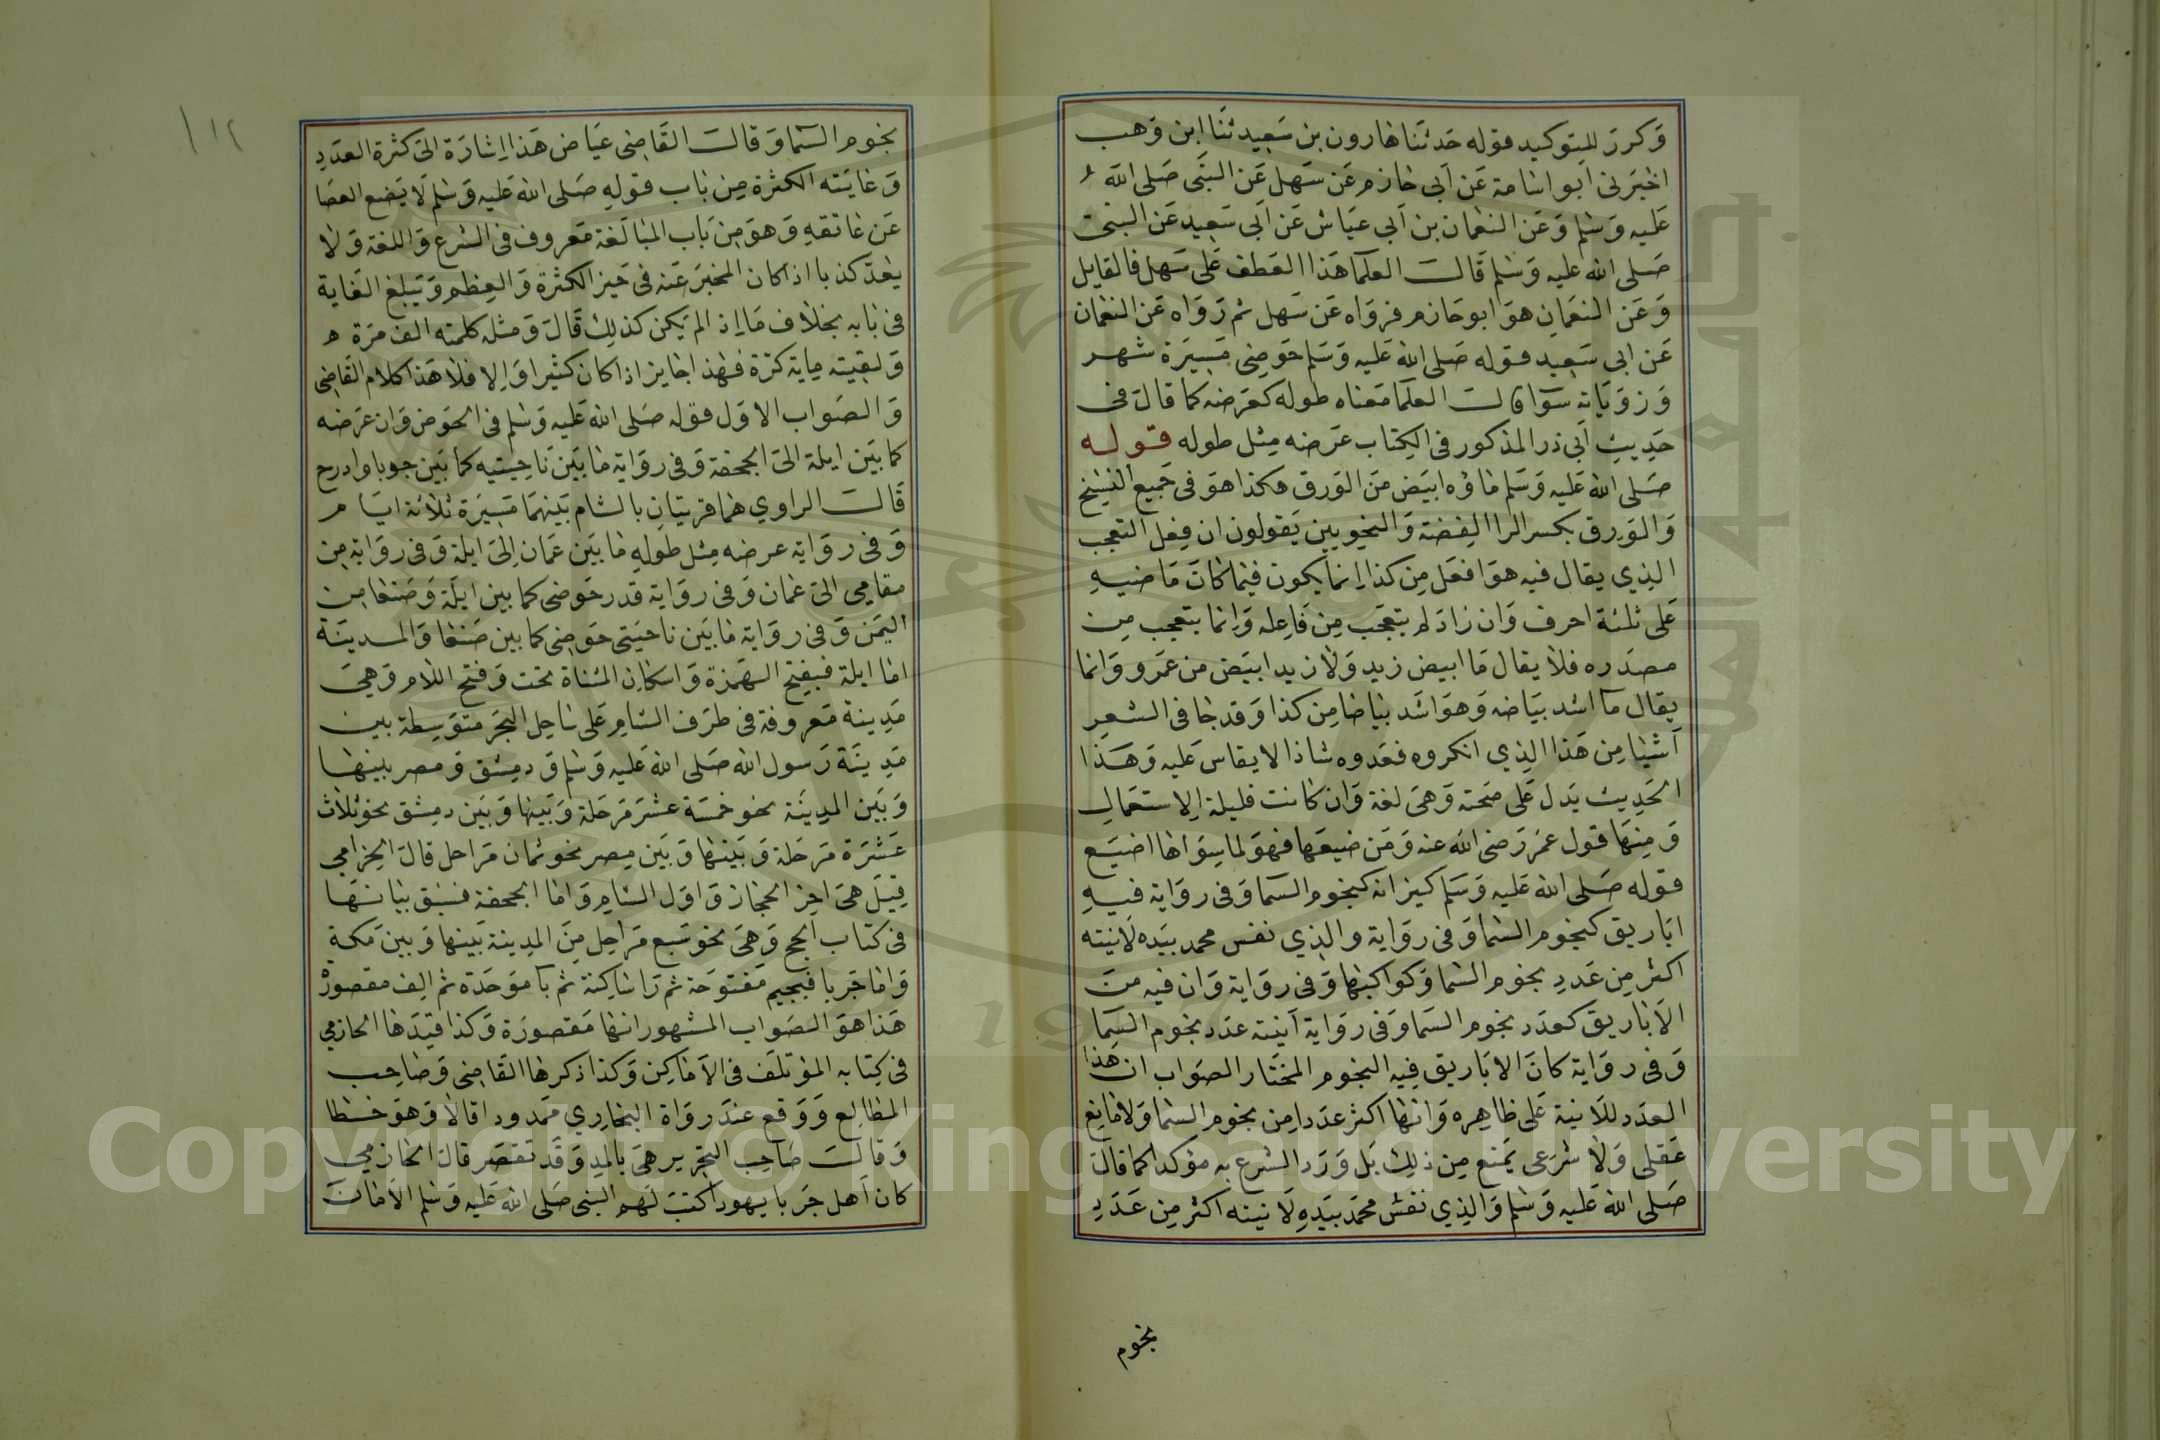 وَكررَ للتوكيد قوله حَدثنَا هارون بن سَعِيد ثنَا ابن وَهب
اخبَرني ابو اسَامة عَن اَبي حَازم عَن سَهل عَن النبَي صَلى الله
عَليه وَسَلم وَعَن النعْمان بن اَبي عيَاش عَن اَبي سَعِيد عَن النبي
صَلى الله عليه وَسَلم قَالت العلمَا هَذا العَطف عَلى سَهل فالقايل
وَعَن النعمَان هوَ ابو حَازم فروَاه عَن سَهل ثم رَوَاه عَن النعْمان
عَن ابي سَعِيد قوله صَلى الله عَليه وَسَلم حَوضِى مَسِيرَة شهر
وَزوَيَاته سَوَا قالت العلمَا مَعناه طوله كعَرضه كما قالَ في
حَدِيثِ اَبي ذر المذكور في الكِتاب عَرَضه مِثل طوله قوله
صَلى الله عَليه وَسَلم مَاؤه ابيَض مَن الوَرِق هكذا هوَ في جَميع النسَخ
وَالوَرِق بكسر الرا الفِضة وَالنحويين يَقولون ان فِعل التعجب
الذِي يقال فيه هوَ افعَل مِن كذا اِنمَا يكون فيمَا كانَ مَاضيهِ
عَلى ثلثة احرف وَان زادَ لم يتعَجب مِن فَاعِله وَاِنما يتعجب مِن
مصدَره فلا يقال مَا ابيض زيد وَلا زيد ابيَض من عَمَرو وَانما
يقال مَا اشد بيَاضه وَهوَ اشَد بيَاضا مِن كذا وَقد جَا في الشعر
اَشيَا مِن هَذا الذِي انكروه فعَدوه شاذا لا يقاس عَليه وَهَذا
الحَدِيث يَدل عَلى صَحته وَهيَ لغة وَان كانت قليلة الاِستعمَال
وَمِنهَا قول عمَر رَضى الله عنه وَمَن ضيعَها فهوَ لما سِوَاهَا اضيَع
قوله صَلى الله عَليه وَسَلم كيزانه كنجوم السمَا وَفي روَاية فيهِ
ابَاريق كنجوم السمَا وَفي روَاية والذِي نفس محمد بيَده لَانيته
اكثر مِن عَددِ نجوم السمَا وَكواكبهَا وَفي روَاية وَان فيه منَ
الاَبَاريق كعدَد نجوم السَمَا وَفي روَاية اَنِية عَدد نجوم السَمَا
وَفي روَاية كانَ الابَاريق فِيه النجوم المختَار الصوَاب ان هَذا
العدَد للانية عَلى ظاهِره وَانهَا اكثر عدَدا مِن نجوم السمَا وَلا مَانع
عَقلى وَلا شرَعى يَمنع مِن ذلِك بَل وَرَد الشرع به مؤكدا كما قالَ
صَلى الله عَليه وَسَلم وَالذِي نفسُ محمَد بيَدِهِ لَانيته اكثر مِن عَدَدِ
نجوم
١١٢
نجوم السمَا وَقالت القَاضِى عيَاض هَذا اِشارَة الىَ كثرة العدَدِ
وَغايَته الكثرة مِن بَاب قولهِ صَلى الله عَليه وَسَلم لَا يَضع العصَا
عَن عَاتقهِ وَهوَ مِن بَاب المبَالَغة مَعروف في الشرع وَاللغة وَلا
يعَدّ كذبا اذا كان المخبرَ عَنه في حَيز الكثرة وَالعِظم وَيَبلغ الغَاية
في بَابه بخلاف مَا اِذا لم يَكن كذلِك قَالَ وَمثله كلمته الف مَرَة
وَلقِيته مِاية كرّة فهَذا جَايز اذا كان كثيرا وَاِلا فلا هَذا كلام القَاضِى
وَالصَواب الاوَل قوله صَلى الله عَليه وَسَلم في الحَوض وَان عَرَضه
كما بَين ايلة الىَ الجحفة وَفي روَاية مَا بَين نَاحِيَتيه كما بَين جربا وادرح
قَالت الراوِي همَا قريتان بالشام بَينهمَا مَسِيَرة ثلاثة ايَام
وَفي روَاية عرضه مِثل طولهِ مَا بَين عمَان اِلىَ ايلة وَفي روَاية مِن
مقامِي الىَ عمَان وَفي روَاية قدر حَوضى كما بين ايلَة وَصَنعَا مِن
اليمَن وَفي روَاية مَا بَين ناحيَتي حَوضِى كما بين صَنعَا وَالمدينَة
امَا ايلة فبفتح الهَمزة وَاسكان المثناة تحت وَفتح اللام وَهيَ
مَدِينة مَعروفة في طرَف الشام عَلى سَاحِل البحَر متوَسِطة بين
مَدِينَة رَسول الله صَلى الله عَليه وَسَلم وَدمِشق وَمصر بينهَا
وَبَين المدِينَة نحو خمسَة عشرَ مَرحَلة وَبَينها وَبَين دمِشق نحو ثلاث
عَشرَة مَرحَلة وَبَينهَا وَبَين مِصر نحو ثمان مَرَاحل قالَ الحِزامي
قِيَل هيَ اخِر الحجَاز وَاوَل الشام وَامَا الجحفة فسَبَق بيَانهَا
في كتَاب الحج وَهيَ نحو سَبع مَرَاحِل مِنَ المدِينة بَينها وَبينَ مَكة
وَامَا جَربا فبجيم مَفتوحَة ثم رَا سَاكِنة ثم بَا مَوحَدَة ثم الِف مقصورٌ
هَذا هوَ الصَوَاب المشهور انهَا مَقصورَة وَكذا قيَدَها الحازمي
في كِتابه المؤتلَف في الاَمَاكِن وَكذا ذكرهَا القَاضِى وَصَاحِب
المطالِع وَوَقع عندَ روَاة البخَارِي ممدودا قالا وَهوَ خطا
وَقالَت صَاحِب التحرير هيَ بالمدِ وَقَد تقصَر قالَ الحَازمي
كان اَهل جَربا يهودا كتبَ لَهم النبى صَلى الله عَليه وَسَلم الاَمَانَ
Copyright © King Saud University